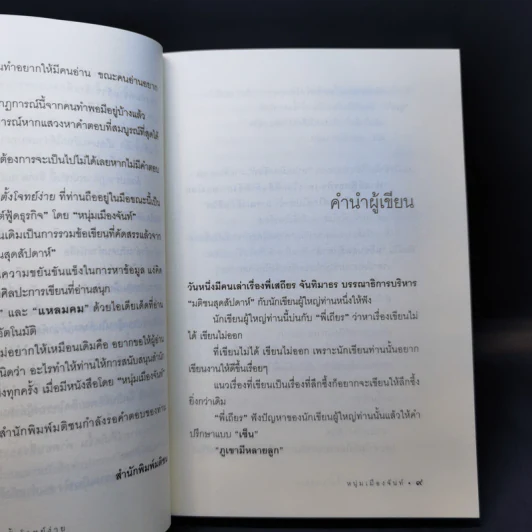 นทำอยากให้มีคนอ่าน ขณะคนอ่านอยาก
ากฏการณ์นี้จากคนทำพอมีอยู่บ้างแล้ว
ารณ์หากแสวงหาคำตอบที่สมบูรณ์ที่สุดได้
ต้องการจะเป็นไปไม่ได้เลยหากไม่มีคำตอบ
ตั้งโจทย์ง่าย ที่ท่านถือยู่ในมือขณะนี้เป็น
ต์ฟู้ดธุรกิจ" โดย "หนุ่มเมืองจันท์"
นเดิมเป็นการรวมข้อเขียนที่คัดสรรแล้วจาก
นสุดสัปดาห์"
ความขยันขันแข็งในการหาข้อมูล แง่คิด
ศิลปะการเขียนที่อ่านสนุก
" และ "แหลมคม" ด้วยไอเดียเด็ดที่อ่าน
อัตโนมัติ
ม่อยากให้เหมือนเดิมคือ อยากขอให้ผู้อ่าน
นิดว่า อะไรทำให้ท่านให้การสนับสนุนสำนัก
งทุกครั้ง เมื่อมีหนังสือโดย "หนุ่มเมืองจันท์"
สำนักพิมพ์มติชนกำลังรอคำตอบของท่าน
สำนักพิมพ์มติชน
คำนำผู้เขียน
วันหนึ่งมีคนเล่าเรื่องพี่เสถียร จันทิมาธร บรรณาธิการบริหาร
"มติชนสุดสัปดาห์" กับนักเขียนผู้ใหญ่ท่านหนึ่งให้ฟัง
นักเขียนผู้ใหญ่ท่านนี้บ่นกับ "พี่เถียร" ว่าหาเรื่องเขียนไม่
ได้ เขียนไม่ออก
ที่เขียนไม่ได้ เขียนไม่ออก เพราะนักเขียนท่านนั้นอยาก
เขียนงานให้ดีขึ้นเรื่อยๆ
แนวเรื่องที่เขียนเป็นเรื่องที่ลึกซึ้งก็อยากจะเขียนให้ลึกซึ้ง
ยิ่งกว่าเดิม
"พี่เถียร" ฟังปัญหาของนักเขียนผู้ใหญ่ท่านนั้นแล้วให้คำ
ปรึกษาแบบ "เซ็น"
"ภูเขามีหลายลูก"
หนุ่มเมืองจันท์ • ๙